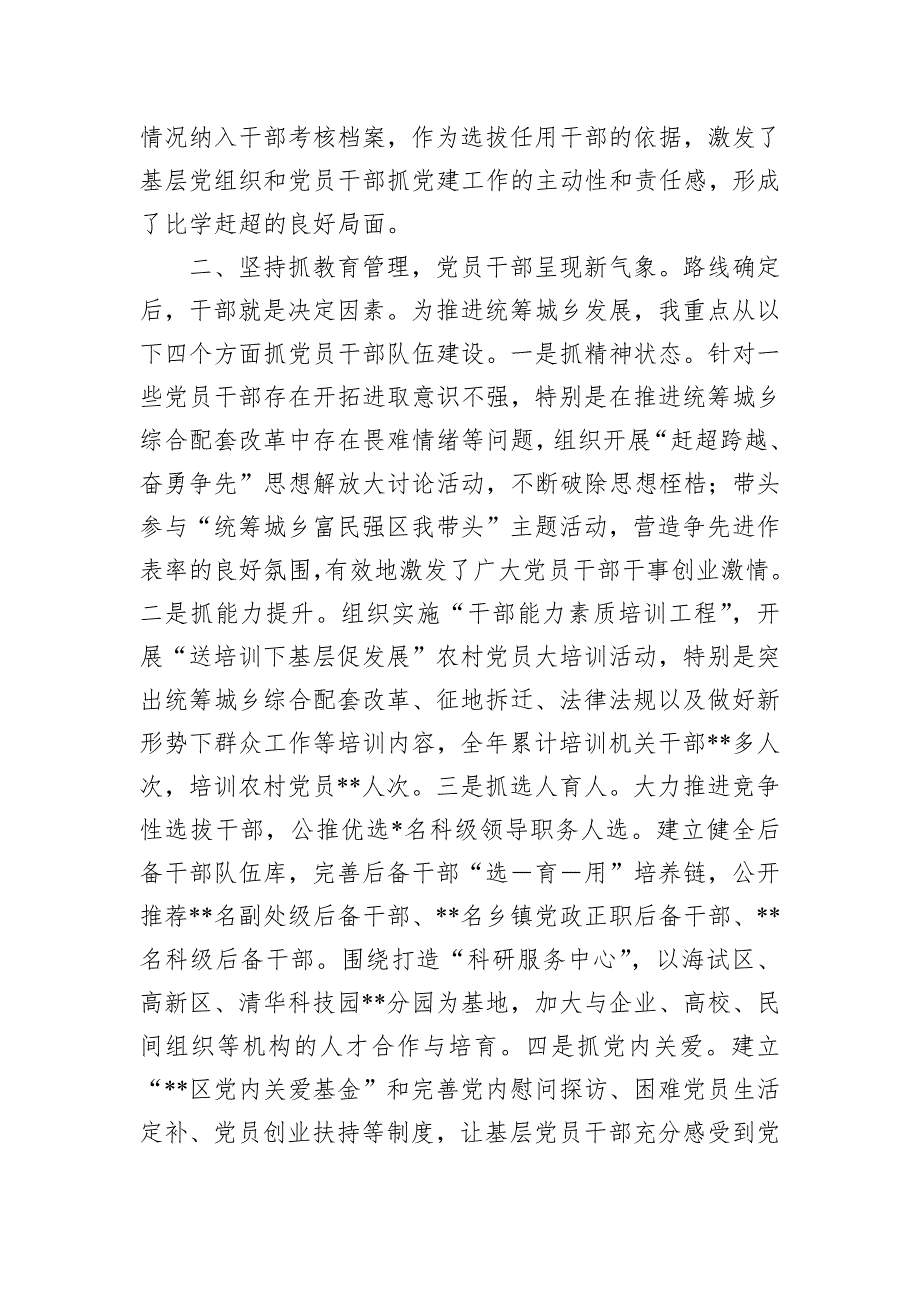 情况纳入干部考核档案，作为选拔任用干部的依据，激发了
基层党组织和党员干部抓党建工作的主动性和责任感，形成
了比学赶超的良好局面。
二、坚持抓教育管理，党员干部呈现新气象。路线确定
后，干部就是决定因素。为推进统筹城乡发展，我重点从以
下四个方面抓党员干部队伍建设。一是抓精神状态。针对一
些党员干部存在开拓进取意识不强，特别是在推进统筹城乡
综合配套改革中存在畏难情绪等问题，组织开展“赶超跨越、
奋勇争先”思想解放大讨论活动，不断破除思想桎梏；带头
参与“统筹城乡富民强区我带头”主题活动，营造争先进作
表率的良好氛围，有效地激发了广大党员干部干事创业激情。
二是抓能力提升。组织实施“干部能力素质培训工程”，开
展“送培训下基层促发展”农村党员大培训活动，特别是突
出统筹城乡综合配套改革、征地拆迁、法律法规以及做好新
形势下群众工作等培训内容，全年累计培训机关干部**多人
次，培训农村党员**人次。三是抓选人育人。大力推进竞争
性选拔干部，公推优选*名科级领导职务人选。建立健全后
备干部队伍库，完善后备干部“选－育－用”培养链，公开
推荐**名副处级后备干部、**名乡镇党政正职后备干部、**
名科级后备干部。围绕打造“科研服务中心”，以海试区、
高新区、清华科技园**分园为基地，加大与企业、高校、民
间组织等机构的人才合作与培育。四是抓党内关爱。建立
“**区党内关爱基金”和完善党内慰问探访、困难党员生活
定补、党员创业扶持等制度，让基层党员干部充分感受到党